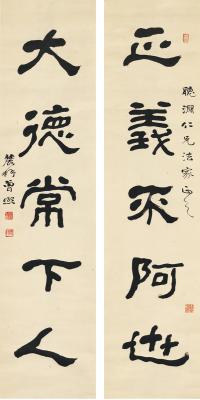 聽淵仁兄法家正之
正義不阿世
大德常下人
農髯曾熙